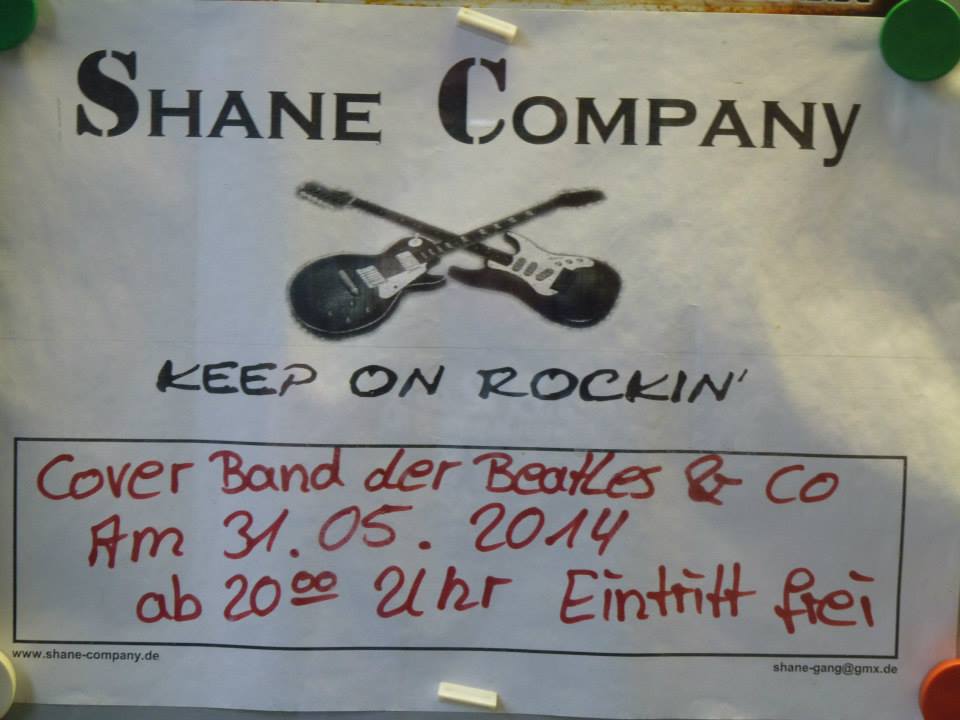 SHANE COMPANY
KEEP ON ROCKIN'
Cover Band der Beatles & Co
Am 31.05.2014
ab 20⁰⁰ Uhr Eintritt frei
www.shane-company.de
shane-gang@gmx.de